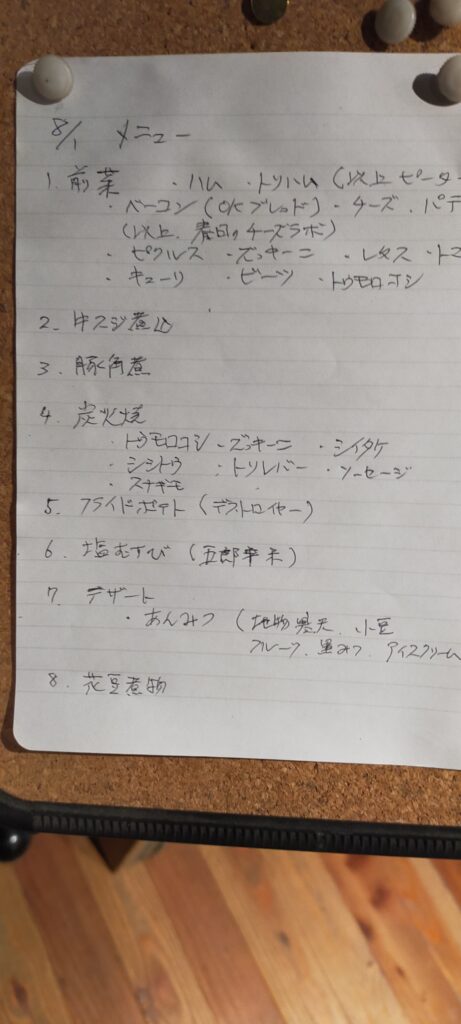 8/1 メニュー
1. 前菜 ・ハム ・トリハム (以上 ピーター
・ベーコン (OKブレッド) ・チーズ ・パテ
(以上、春日のチーズラボ)
・ピクルス ・ズッキーニ ・レタス ・トマ
・キューリ ・ビーツ ・トウモロコシ
2. 牛スジ煮込
3. 豚角煮
4. 炭火焼
・トウモロコシ ・ズッキーニ ・シイタケ
・シシトウ ・トリレバー ・ソーセージ
・スナギモ
5. フライドポテト (デストロイヤー)
6. 塩むすび (五郎兵衛米)
7. デザート
・あんみつ (地物寒天、小豆
フルーツ、黒みつ、アイスクリーム
8. 花豆煮物